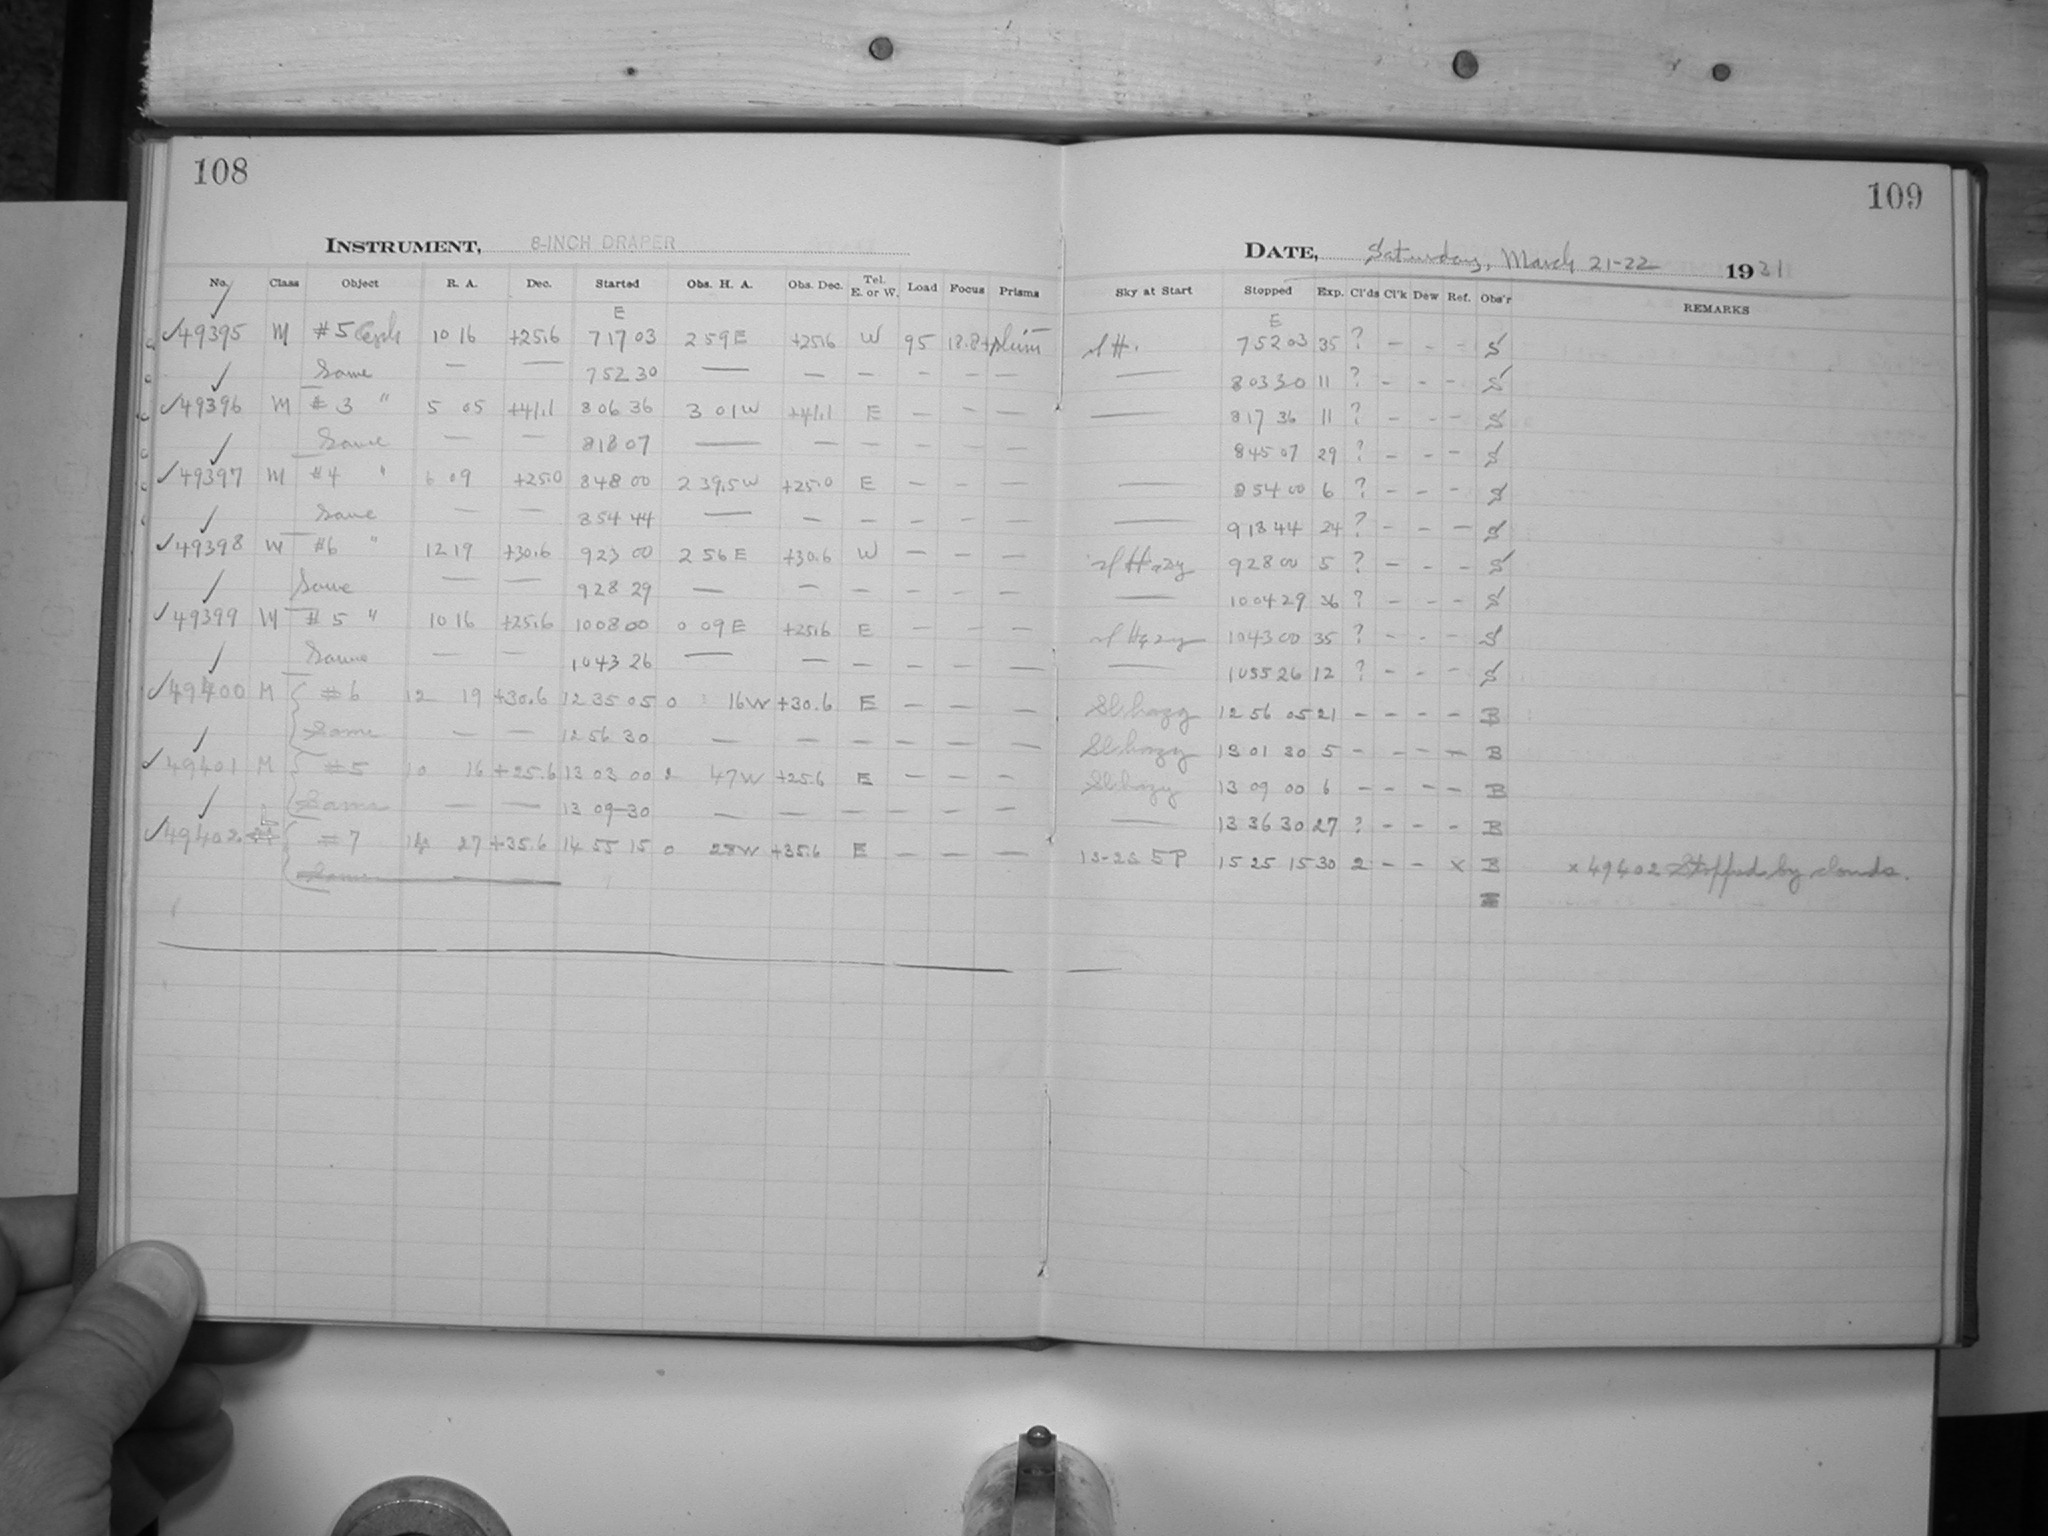 108
109
INSTRUMENT, 8-INCH DRAPER
DATE, Saturday, March 21-22 1931
No. Class Object R. A. Dec. Started Obs. H. A. Obs. Dec. Tel. E. or W. Load Focus Prisms Sky at Start Stopped Exp. Cl'ds Cl'k Dew Ref. Obs'r REMARKS
E E
✓49395 M #5 10 16 +25.6 7 17 03 2 59 E +25.6 W 95 H. 7 52 03 35 ? - - - S
Same — — 7 52 30 — — — — — — — 8 03 30 11 ? - - - S
✓49396 M # 3 " 5 05 +41.1 8 06 36 3 01 W +41.1 E — — — — 8 17 36 11 ? - - - S
Same — — 8 18 07 — — — — — — 8 45 07 29 ? - - - S
✓49397 M #4 " 6 09 +25.0 8 48 00 2 39.5 W +25.0 E — — — — 8 54 00 6 ? - - - S
Same — — 8 54 44 — — — — — — — 9 18 44 24 ? - - - S
✓49398 M #6 " 12 19 +30.6 9 23 00 2 56 E +30.6 W — — — Hazy 9 28 00 5 ? - - - S
Same — — 9 28 29 — — — — — — — 10 04 29 36 ? - - - S
✓49399 M # 5 " 10 16 +25.6 10 08 00 0 09 E +25.6 E — — — Hazy 10 43 00 35 ? - - - S
Same — — 10 43 26 — — — — — — — 10 55 26 12 ? - - - S
✓49400 M #6 12 19 +30.6 12 35 05 0 16 W +30.6 E — — — Sl. hazy 12 56 05 21 - - - - B
Same — — 12 56 30 — — — — — — Sl. hazy 13 01 30 5 - - - - B
✓49401 M #5 10 16 +25.6 13 03 00 2 47 W +25.6 E — — — Sl. hazy 13 09 00 6 - - - - B
Same — — 13 09 30 — — — — — — — 13 36 30 27 ? - - - B
✓49402 #7 14 27 +35.6 14 55 15 0 28 W +35.6 E — — — 13-25 5P 15 25 15 30 2 - - x B x 49402 Stopped by clouds.
Same